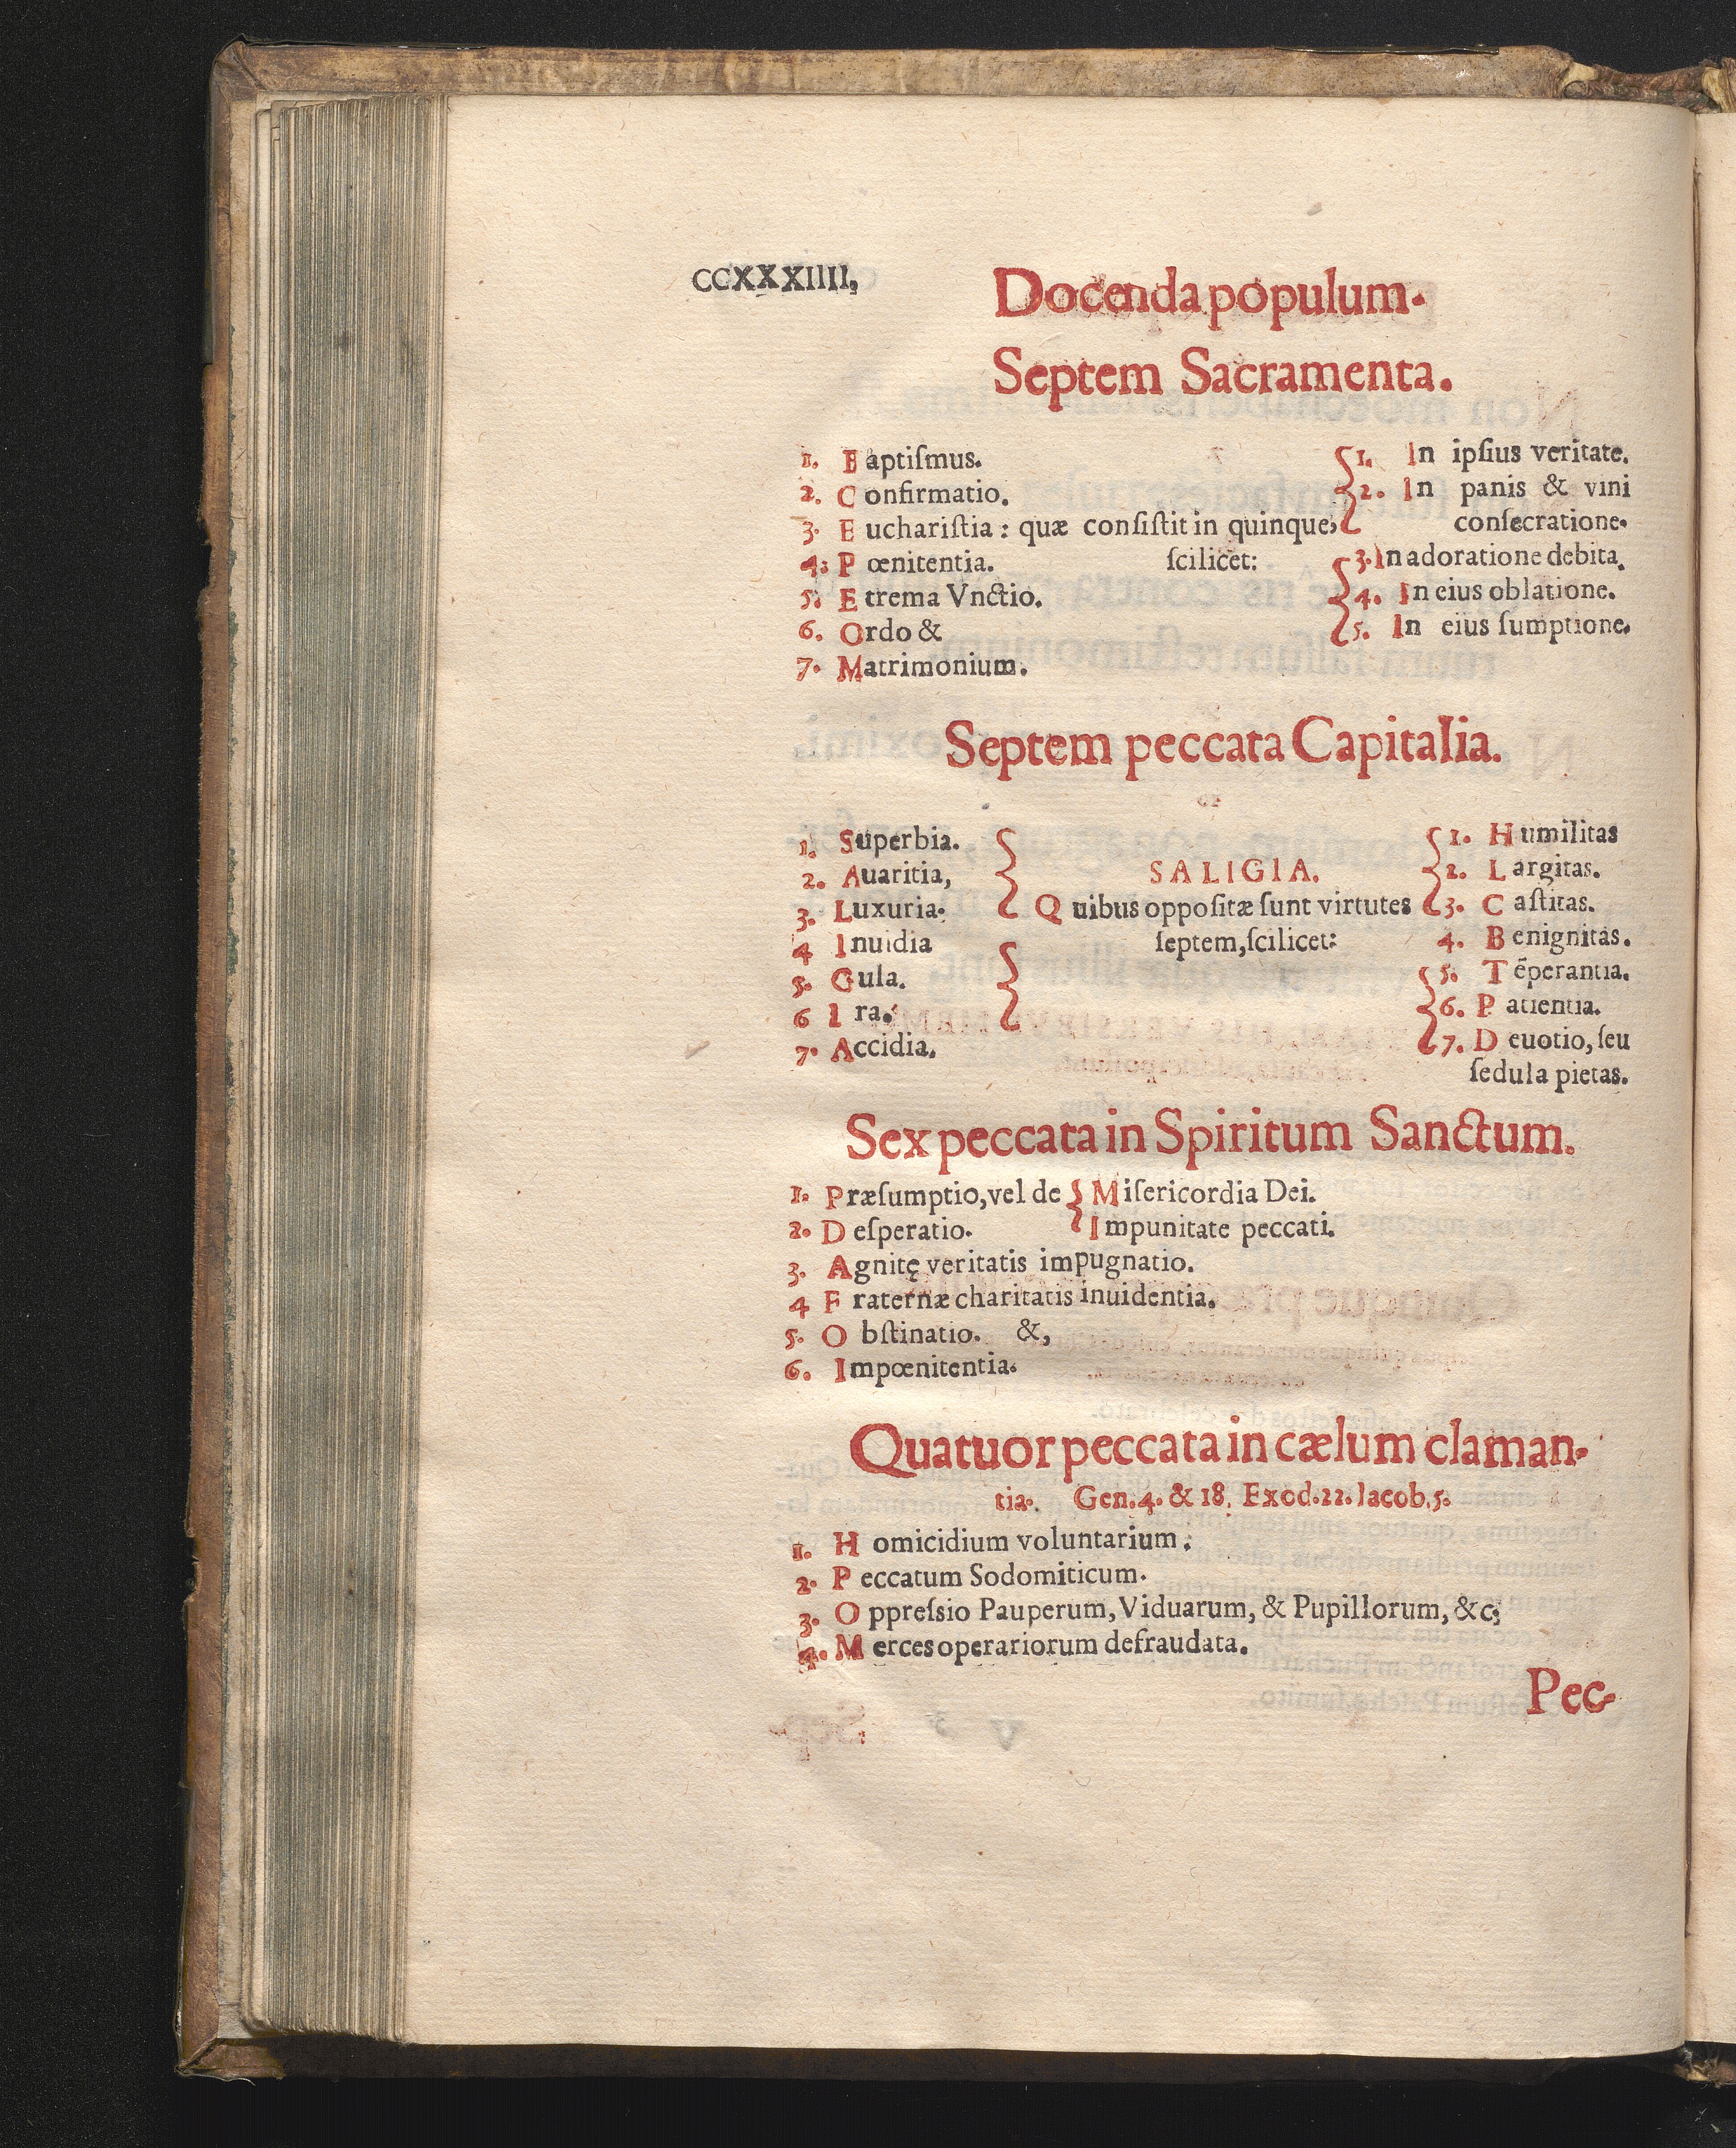 CCXXXIIII,
Docenda populum.
Septem Sacramenta.
1. Baptiſmus.
2. Confirmatio.
3. Euchariſtia: quæ conſiſtit in quinque,
4: Pœnitentia. ſcilicet:
5. Etrema Vnctio.
6. Ordo &
7. Matrimonium.
1. In ipſius veritate.
2. In panis & vini
conſecratione.
3. In adoratione debita.
4. In eius oblatione.
5. In eius ſumptione.
Septem peccata Capitalia.
1. Superbia.
2. Auaritia,
3. Luxuria.
4 Inuidia
5. Gula.
6 Ira.
7. Accidia.
SALIGIA.
Quibus oppoſitæ ſunt virtutes
ſeptem, ſcilicet:
1. Humilitas
2. Largitas.
3. Caſtitas.
4. Benignitas.
5. Tēperantia.
6. Patientia.
7. Deuotio, ſeu
ſedula pietas.
Sex peccata in Spiritum Sanctum.
1. Præſumptio, vel de Miſericordia Dei.
2. Deſperatio. Impunitate peccati.
3. Agnitę veritatis impugnatio.
4 Fraternæ charitatis inuidentia.
5. Obſtinatio. &,
6. Impœnitentia.
Quatuor peccata in cælum claman-
tia. Gen.4. & 18. Exod.22. Iacob.5.
1. Homicidium voluntarium.
2. Peccatum Sodomiticum.
3. Oppreſsio Pauperum, Viduarum, & Pupillorum, &c;
4. Merces operariorum defraudata.
Pec-